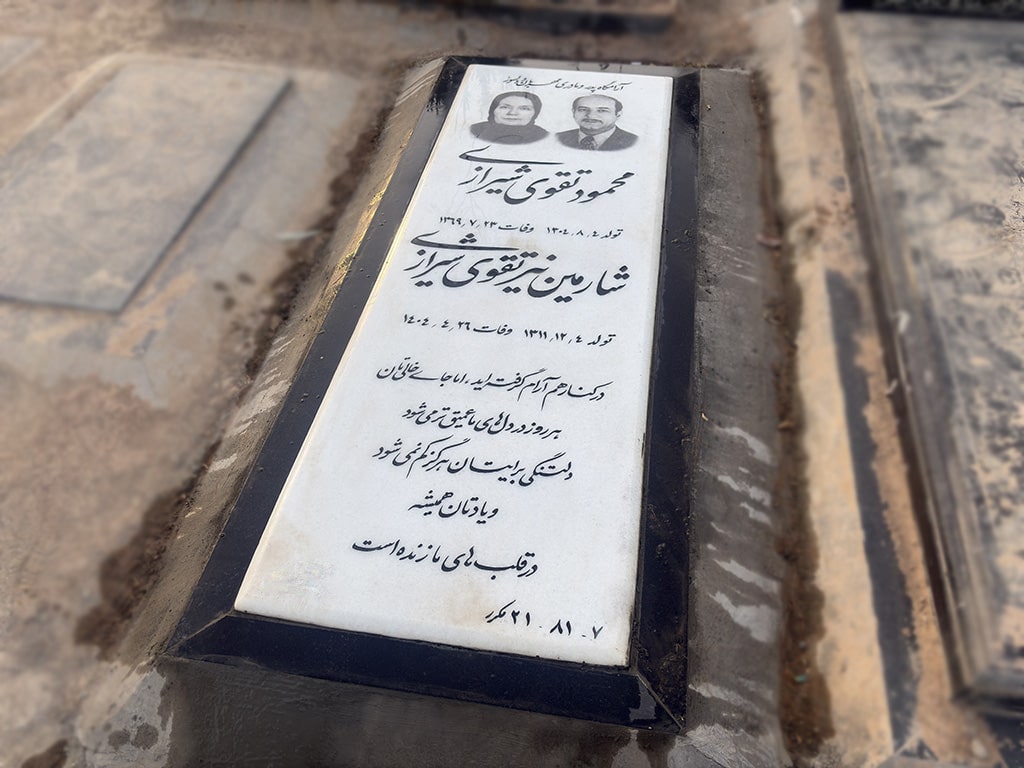 آرامگاه پدر و مادری مهربان و دلسوز
محمود تقوی شیرازی
تولد ۱۳۰۴٫۸٫۴ وفات ۱۳۶۹٫۷٫۲۳
شارمین نیر تقوی شیرازی
تولد ۱۳۱۱٫۱۲٫۴ وفات ۱۴۰۴٫۴٫۲۶
در کنار هم آرام گرفته‌اید، اما جای خالی‌تان
هر روز در دل‌های ما عمیق‌تر می‌شود
دلتنگی برایتان هرگز کم نمی‌شود
و یادتان همیشه
در قلب‌های ما زنده است
۷ - ۸۱ - ۲۱ مکرر